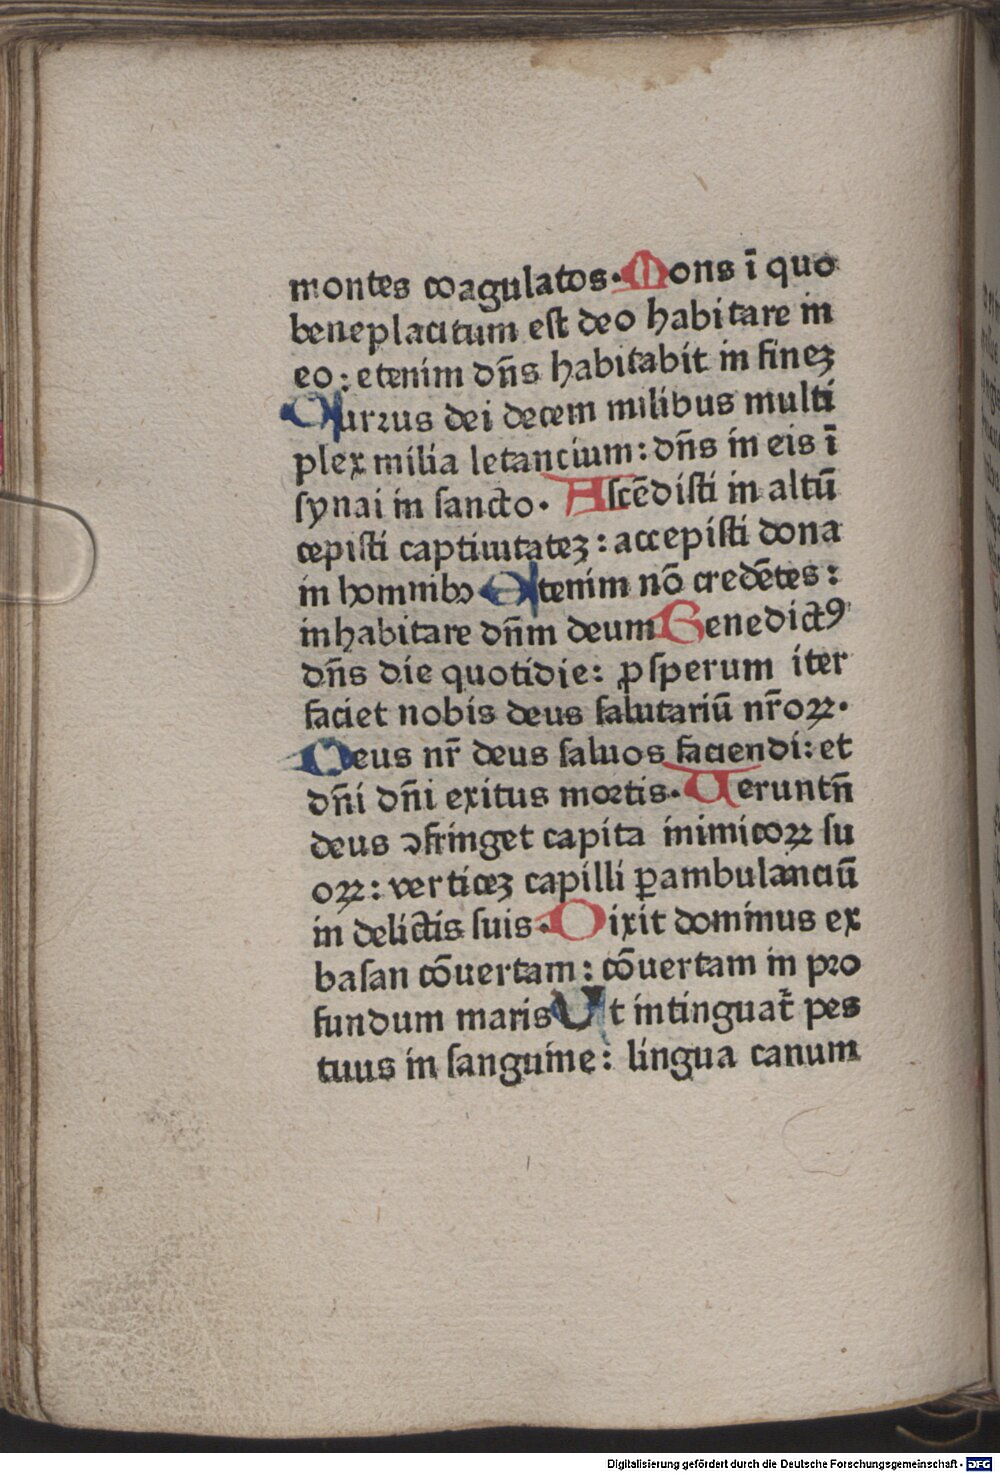 montes coagulatos. Mons ī quo
beneplacitum est deo habitare in
eo: etenim dn̄s habitabit in fineʒ
Currus dei decem milibus multi
plex milia letancium: dn̄s in eis ī
synai in sancto. Ascēdisti in altū
cepisti captiuitateʒ: accepisti dona
in hominibꝰ Etenim nō credētes:
inhabitare dn̄m deum Benedictꝰ
dn̄s die quotidie: ꝓsperum iter
faciet nobis deus salutariū nr̄oꝝ.
Deus nr̄ deus saluos faciendi: et
dn̄i dn̄i exitus mortis. Ueruntn̄
deus ↄfringet capita inimicoꝝ su
oꝝ: verticeʒ capilli ꝑambulanciū
in delictis suis. Dixit dominus ex
basan cōuertam: cōuertam in pro
fundum maris Ut intinguat̄ pes
tuus in sanguine: lingua canum
Digitalisierung gefördert durch die Deutsche Forschungsgemeinschaft - DFG